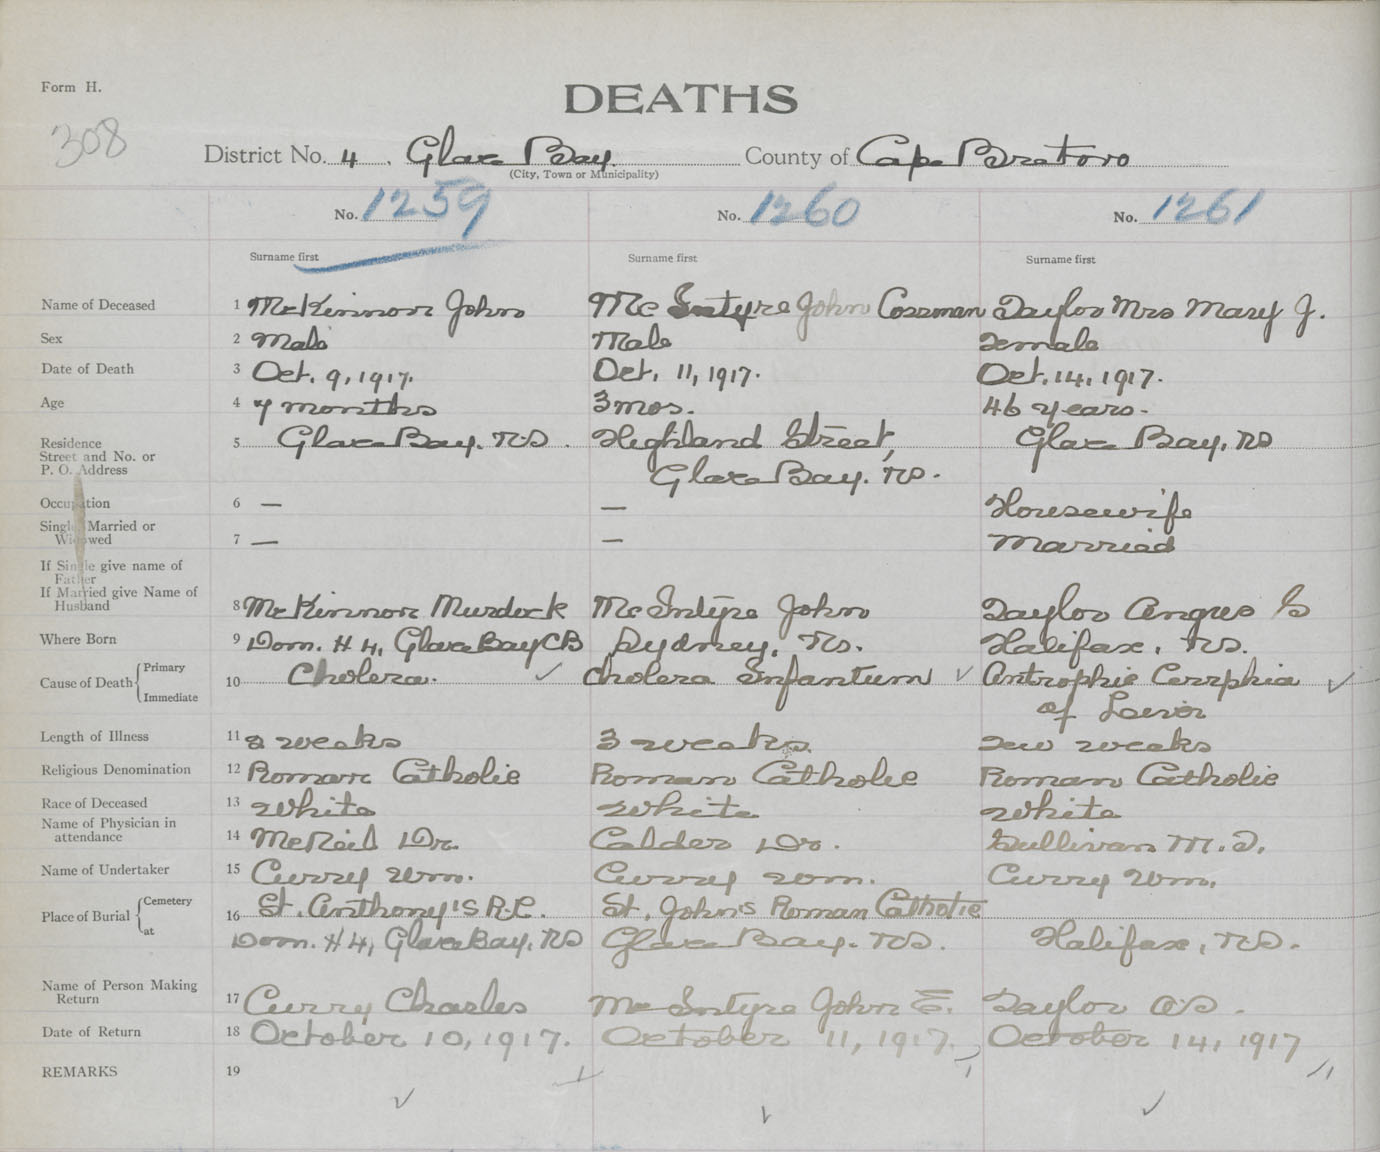 Form H.
DEATHS
308
District No. 4. Glace Bay. County of Cape Breton
(City, Town or Municipality)
No. 1259 No. 1260 No. 1261
Surname first Surname first Surname first
Name of Deceased 1 McKinnon John McIntyre John Cossman Taylor Mrs Mary J.
Sex 2 Male Male Female
Date of Death 3 Oct. 9, 1917. Oct. 11, 1917. Oct. 14, 1917.
Age 4 7 months 3 mos. 46 years.
Residence Street and No. or P. O. Address 5 Glace Bay. N.S. Highland Street, Glace Bay. N.S. Glace Bay, N.S
Occupation 6 — — Housewife
Single Married or Widowed 7 — — Married
If Single give name of Father
If Married give Name of Husband 8 McKinnon Murdock McIntyre John Taylor Angus
Where Born 9 Dom. # 4, Glace Bay CB Sydney, N.S. Halifax, N.S.
Cause of Death Primary Immediate 10 Cholera. Cholera Infantum of
Length of Illness 11 2 weeks 3 weeks. Few weeks
Religious Denomination 12 Roman Catholic Roman Catholic Roman Catholic
Race of Deceased 13 White White White
Name of Physician in attendance 14 McNeil Dr. Calder Dr. Sullivan M.D.
Name of Undertaker 15 Curry Wm. Curry Wm. Curry Wm.
Place of Burial Cemetery at 16 St. Anthony's R.C. St. John's Roman Catholic
Dom. # 4, Glace Bay, N.S Glace Bay. N.S. Halifax, N.S.
Name of Person Making Return 17 Curry Charles McIntyre John E. Taylor A.S.
Date of Return 18 October 10, 1917. October 11, 1917. October 14, 1917
REMARKS 19